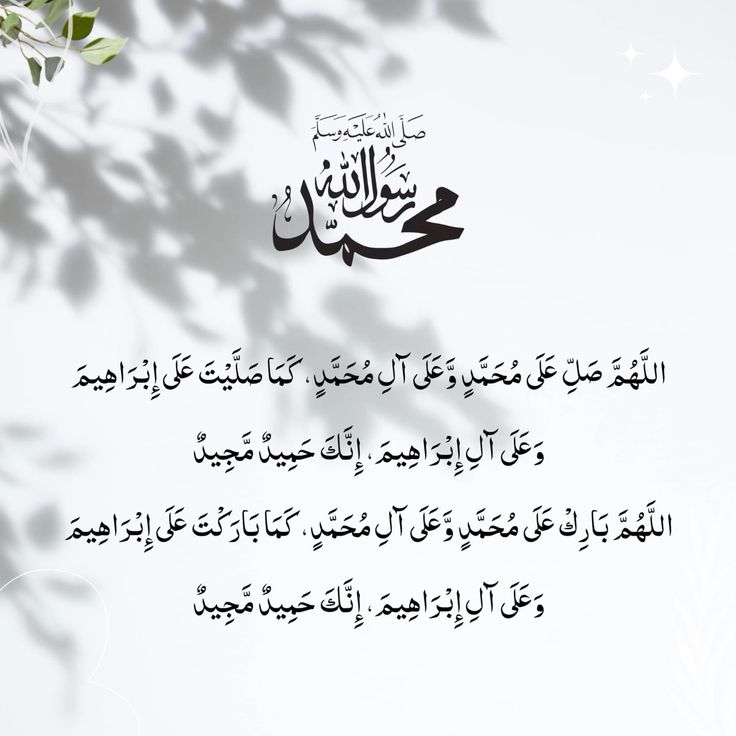 صَلَّى اللهُ عَلَيْهِ وَسَلَّمَ
مُحَمَّدٌ رَسُولُ اللهِ
اللَّهُمَّ صَلِّ عَلَى مُحَمَّدٍ وَّعَلَى آلِ مُحَمَّدٍ، كَمَا صَلَّيْتَ عَلَى إِبْرَاهِيمَ
وَعَلَى آلِ إِبْرَاهِيمَ، إِنَّكَ حَمِيدٌ مَّجِيدٌ
اللَّهُمَّ بَارِكْ عَلَى مُحَمَّدٍ وَّعَلَى آلِ مُحَمَّدٍ، كَمَا بَارَكْتَ عَلَى إِبْرَاهِيمَ
وَعَلَى آلِ إِبْرَاهِيمَ، إِنَّكَ حَمِيدٌ مَّجِيدٌ